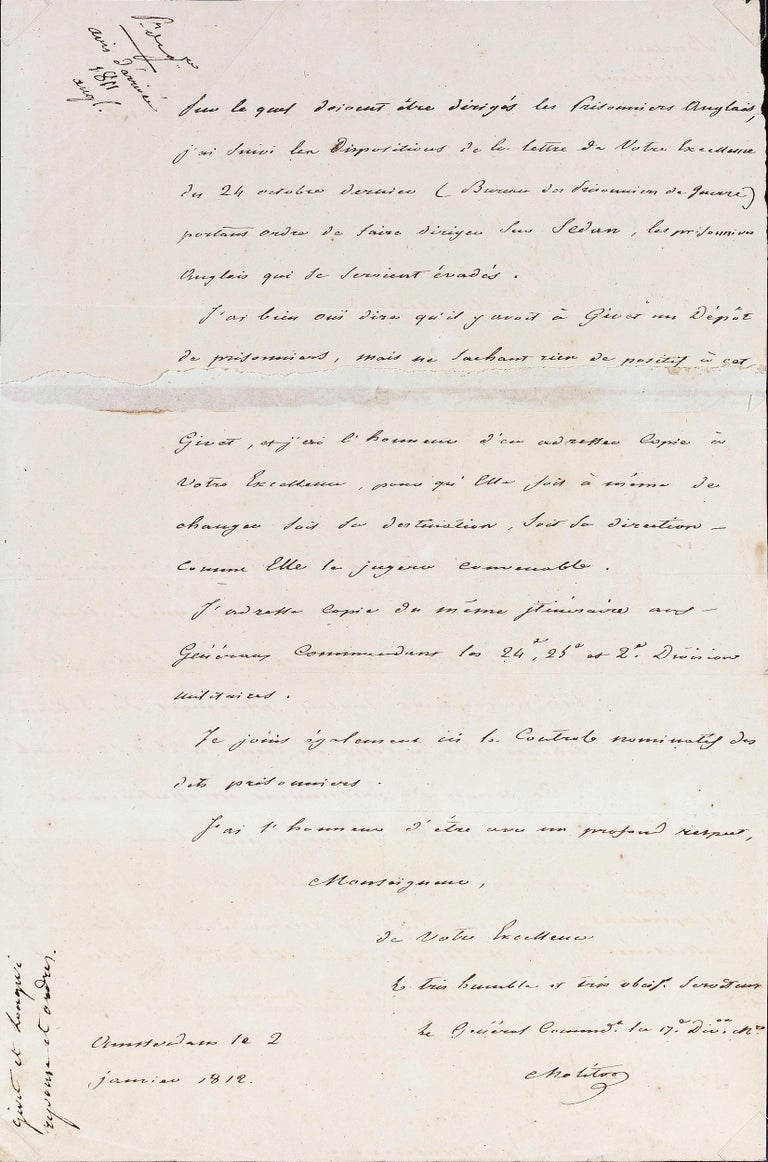 avis d'arrivée
1811
angl.
Sur le quel doivent être dirigés les Prisonniers Anglais,
j'ai suivi les Dispositions de la lettre de Votre Excellence
du 24 octobre dernier (Bureau des Prisonniers de guerre)
portant ordre de faire diriger sur Sedan, les prisonniers
Anglais qui se seroient évadés.
J'ai bien ouï dire qu'il y avoit à Givet un Dépôt
de prisonniers, mais ne sachant rien de positif à cet
Givet, et j'ai l'honneur d'en adresser Copie à
Votre Excellence, pour qu'Elle soit à même de
changer soit la destination, soit la direction -
comme Elle le jugera convenable.
J'adresse copie du même itinéraire aux -
Généraux Commandans les 24e, 25e et 2e. Division
militaires.
Je joins également ici le Controle nominatif des
dits prisonniers.
J'ai l'honneur d'être avec un profond respect,
Monseigneur,
de Votre Excellence
Le très humble et très obéisst. Serviteur
Le Général Commdt. la 17e. Divon. Mre
Molitor
Amsterdam le 2
janvier 1812.
Givet et Longwi
reponse et ordres.